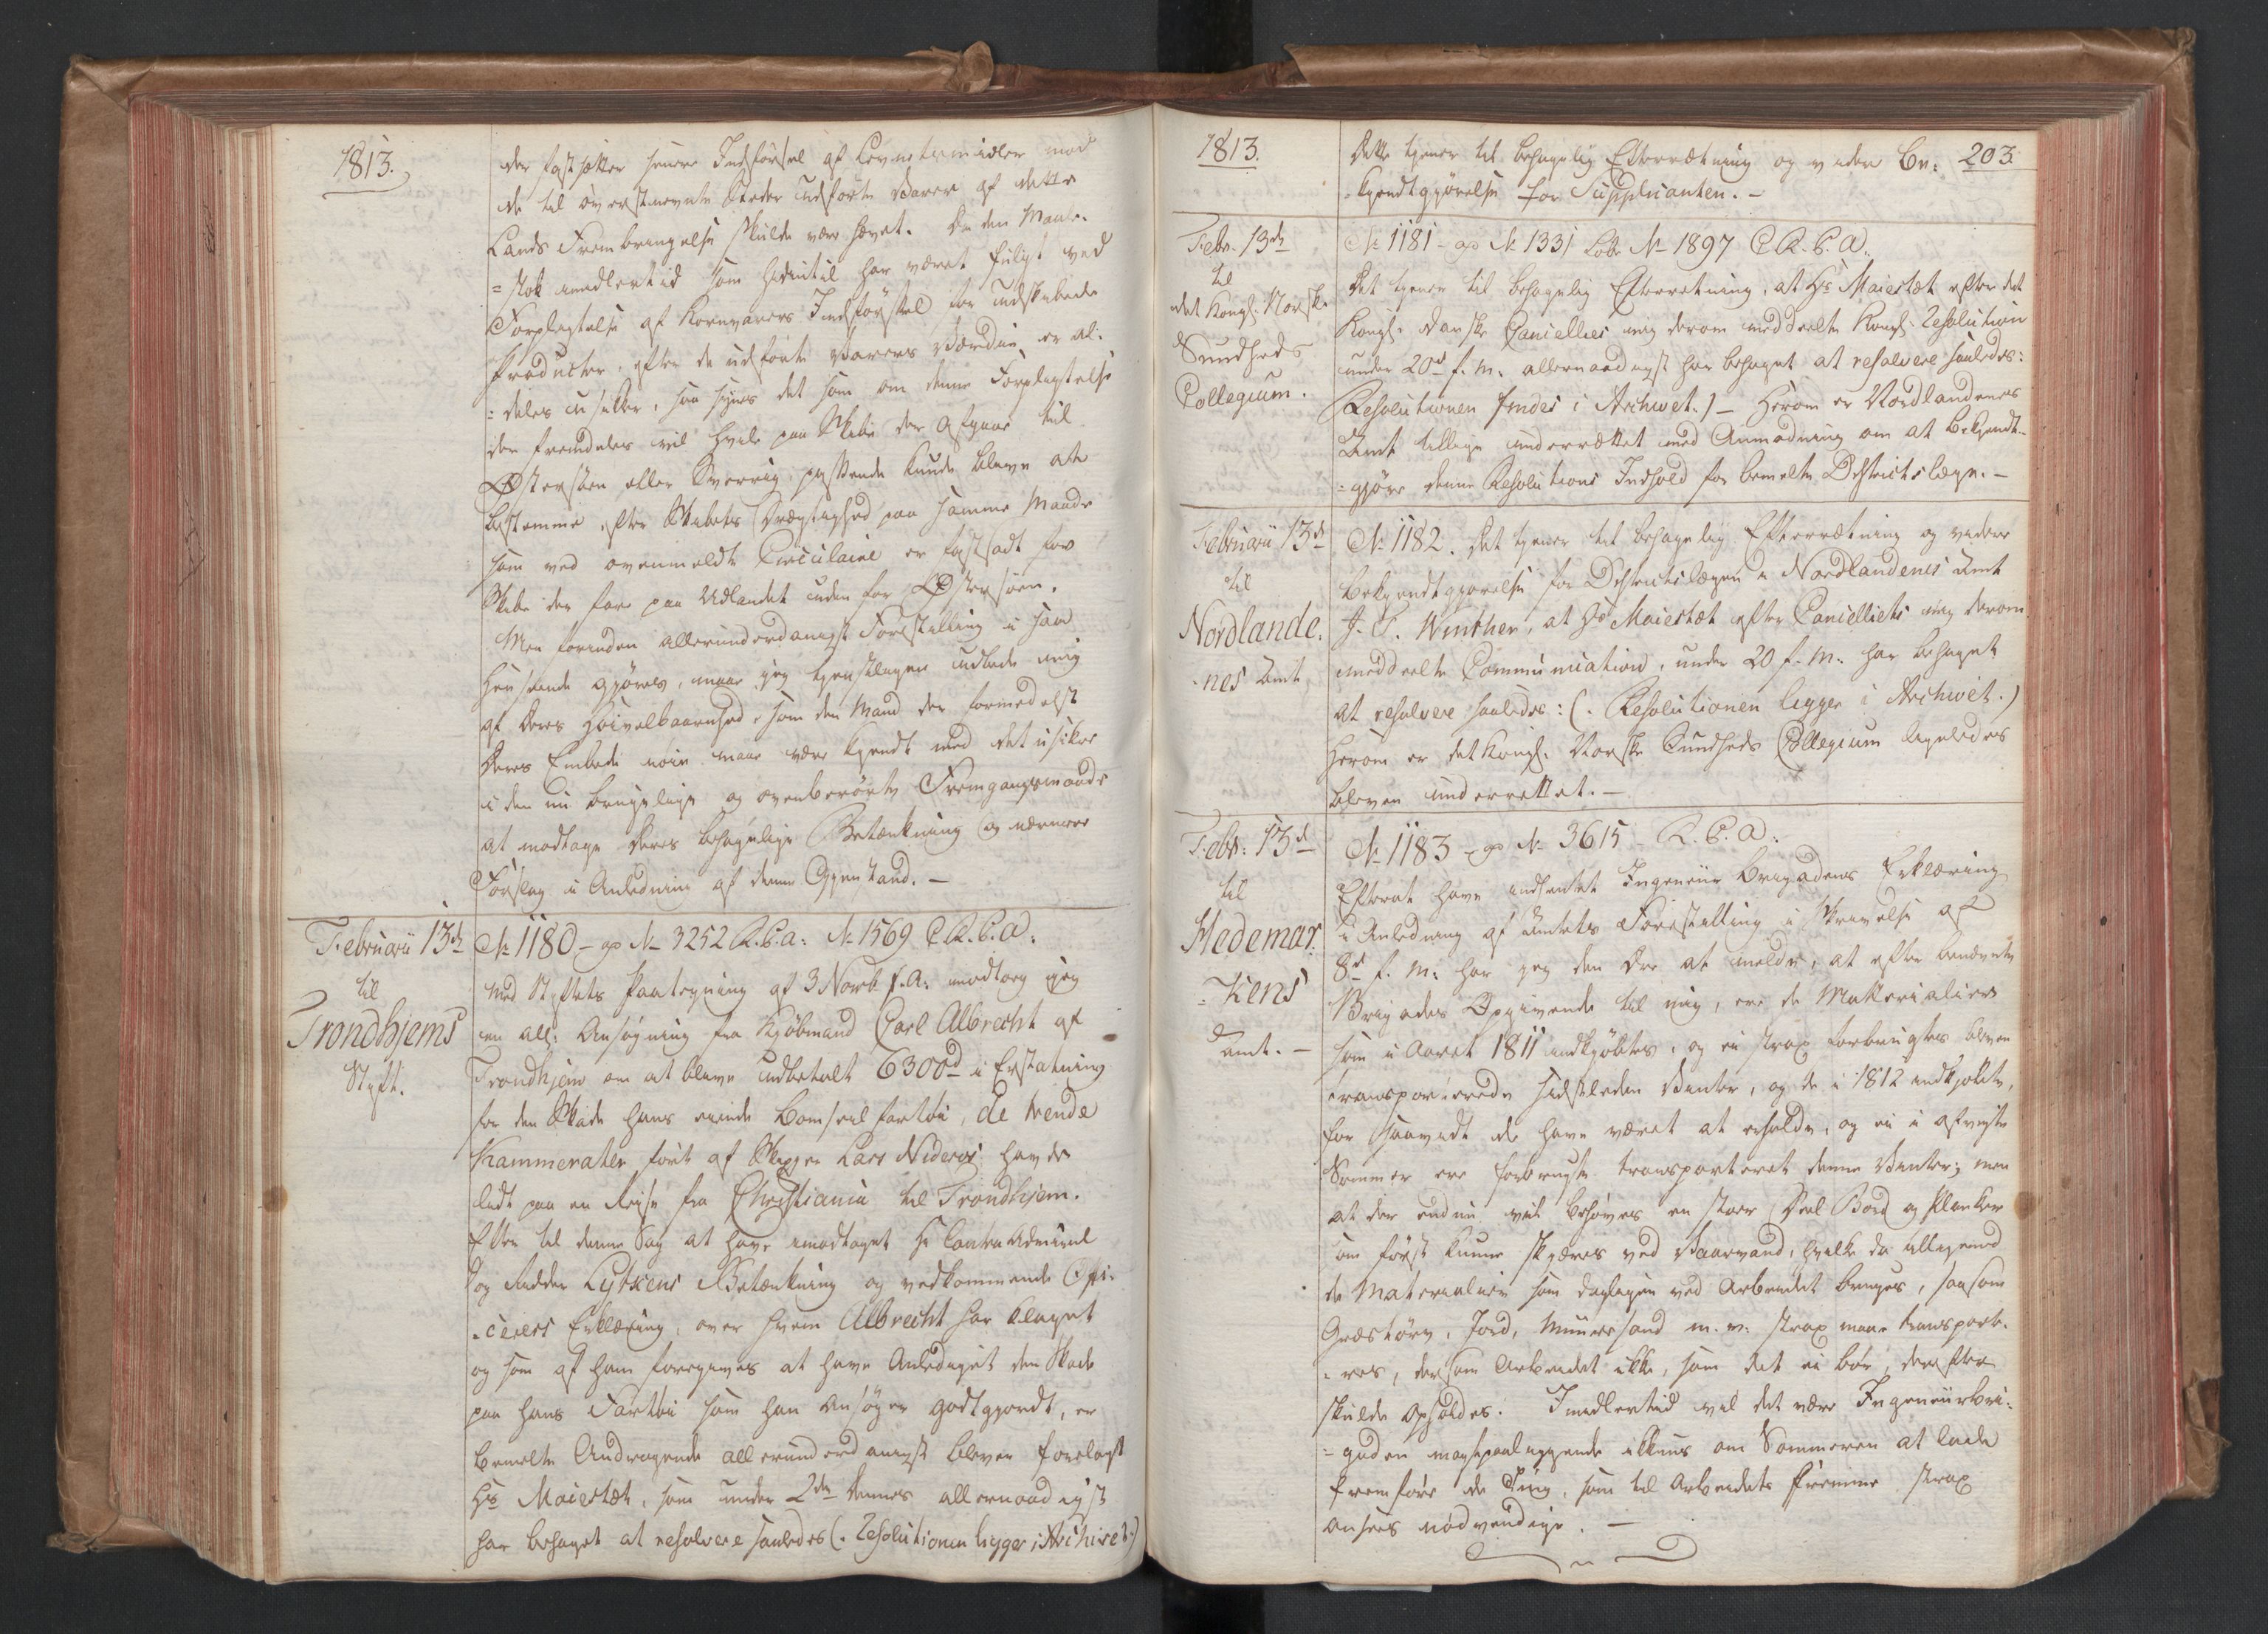 1813.
der fastsætter senere Indførsel af Levnetsmidler mod
de til ovenstnevnte Steder udførte Varer af dette
Lands Frembringelse skulde være hævet. Da den Maale-
=stok imidlertid som hidintil har været fulgt ved
Forpligtelse af Kornvarers Indførsel for udskibede
Producter, efter de udførte Varers Værdie er al-
=deles usikker, saa synes det som om denne Forpligtelse
der fremdeles vil hvile paa Skibe der afgaae til
Østersøen eller Sverrig passende kunde blive at
bestemme efter Skibets Drægtighed paa samme Maade
som ved ovenmeldte Circulaire er fastsadt for
Skibe der fare paa Udlandet uden for Østersøen.
Men forinden allerunderdanigst Forestilling i saa
Henseende gjøres, maae jeg tjenstligen udbede mig
af Deres Høivelbaarenhed, som den Mand der formedelst
Deres Embede nøie maae være kjendt med det usikre
i den nu brugelige og ovenberørte Fremgangsmaade
at modtage Deres behagelige Betænkning og nærmere
Forslag i Anledning af denne Gjenstand. —
Februarii 13de
til
Trondhjems
Stift.
No 1180 - go No 3252 R.C.a: No 1569 C.R.C.a:
Med Stiftets Paategning af 3 Novb f. A: modtog jeg
en all: Ansøgning fra Kjøbmand Carl Albrecht af
Trondhjem om at blive udbetalt 6300d i Erstatning
for den Skade hans eiende Bomseil fartøi, de tvende
Kammerater ført af Skipper Lars Niderøi havde
lidt paa en Reise fra Christiania til Trondhjem.
Efter til denne Sag at have modtaget Hr Contra Admiral
og Ridder Lytkens Betænkning og vedkommende Offi-
=ceers Erklæring, over hvem Albrecht har klaget
og som af ham foregives at have Anlediget den Skade
paa hans Fartøi som han Ansøger godtgjordt, er
bemelte Andragende allerunderdanigst bleven forelagt
Hs Maiestæt, som under 2den dennes allernaadigst
har behaget at resolvere saaledes (: Resolutionen ligger i Archivet:)
1813.
203.
Dette tjener til behagelig Efterretning og videre Be-
=kjendtgjørelse for Supplicanten. —
Febr. 13de
til
det Kongl: Norske
Sundheds
Collegium.
No 1181 - go No 1331 Lobe No 1897 C.R.C.a.
Det tjener til behagelig Efterretning, at Hs Maiestæt efter det
Kongl: danske Cancellies mig derom meddeelte Kongl: Resolution
under 20d f. M: allernaadigst har behaget at resolvere saaledes:
(Resolutionen findes i Archivet.) — Herom er Nordlandenes
Amt tillige underrettet med Anmodning om at bekjendt-
=gjøre denne Resolutions Indhold for bemelte Districtslæge. —
Februarii 13de
til
Nordlande-
=nes Amt
No 1182. Det tjener til behagelig Efterretning og videre
bekjendtgjørelse for Districtslægen i Nordlandenes Amt
J. C. Winther, at Hs Maiestæt efter Cancelliets mig derom
meddeelte Communication, under 20 f. M: har behaget
at resolvere saaledes: (: Resolutionen ligger i Archivet.)
Herom er det Kongl: Norske Sundheds Collegium ligeledes
bleven underrettet. —
Febr: 13d
til
Hedemar-
=kens
Amt. —
No 1183 - go No 3615 - R.C.a:
Efterat have indhentet Ingenieur Brigadens Erklæring
i Anledning af Amtets Forestilling i Skrivelse af
8d f. M: har jeg den Ære at melde, at efter benævnte
Brigades Opgivende til mig, ere de Materialier
som i Aaret 1811 indkjøbtes, og ei strax forbrugtes bleven
transporterede sidstleden Vinter, og de i 1812 indkjøbte,
for saavidt de have været at erholde, og ei i afvigte
Sommer ere forbrugte transporteret denne Vinter; men
at der endnu vil behøves en stor Deel Bord og Planker
som først kunne skjæres ved Vaarvand, hvilke da alligevel
de Materialier som dagligen ved Arbeidet bruges, saasom
Græstørv, Jord, Muursand m. v. strax maae transporte-
=res, dersom Arbeidet ikke, som det ei bør, derefter
skulde opholdes. Imidlertid vil det være Ingenieurbri-
=gaden magtpaaliggende ikkuns om Sommeren at lade
fremføre de Ting, som til Arbeidets Fremme strax
ansees nødvendige. —